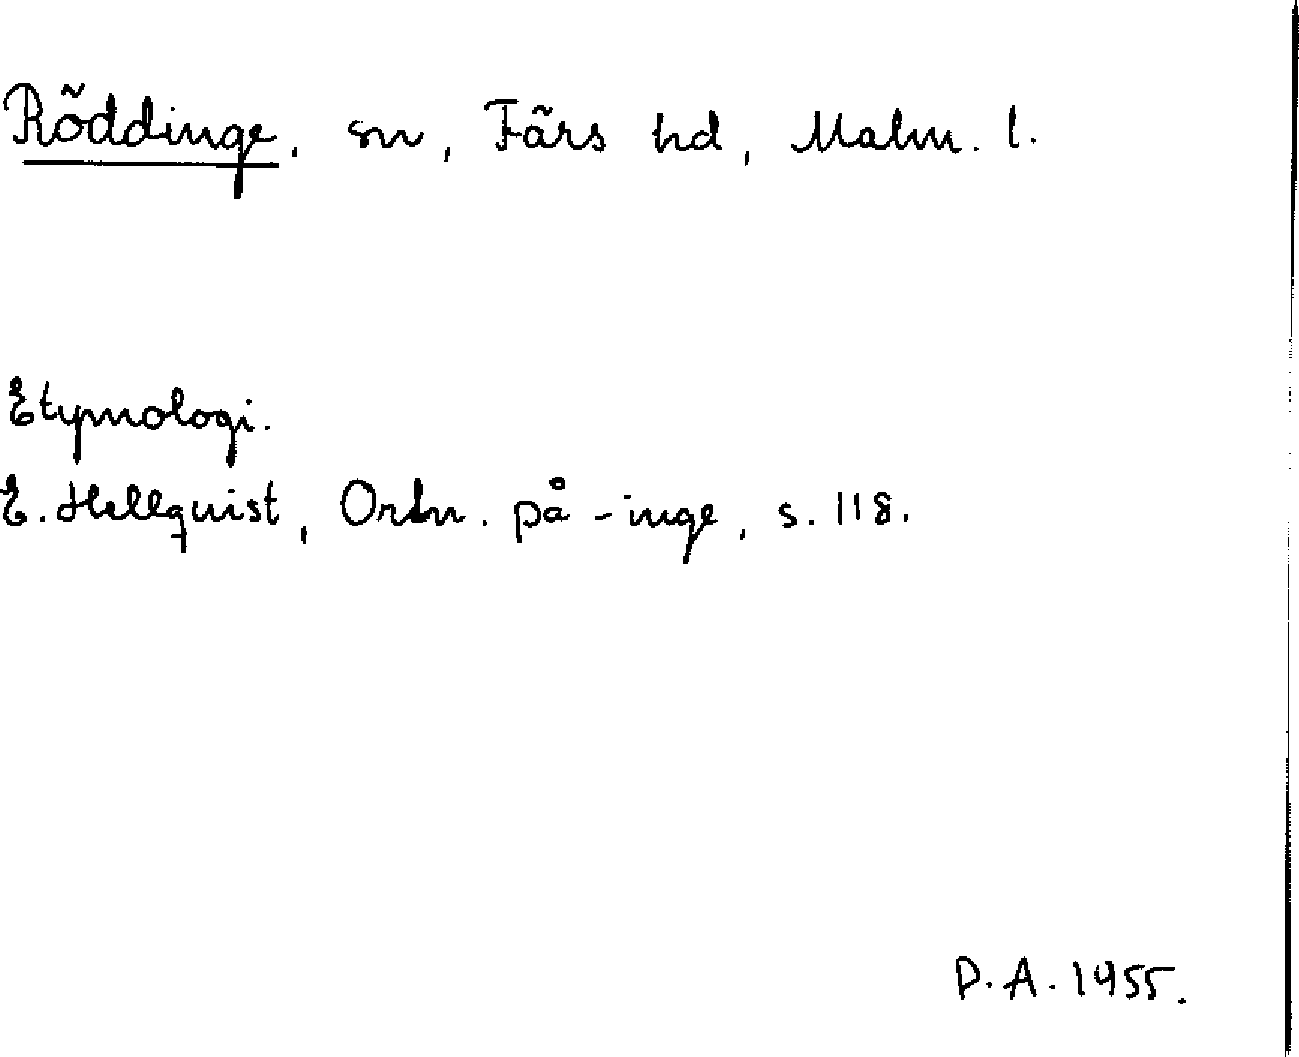 Röddinge, sn, Färs hd, Malm. l.
Etymologi.
E. Hellquist, Ortn. på -inge, s. 118.
D.A. 1955.